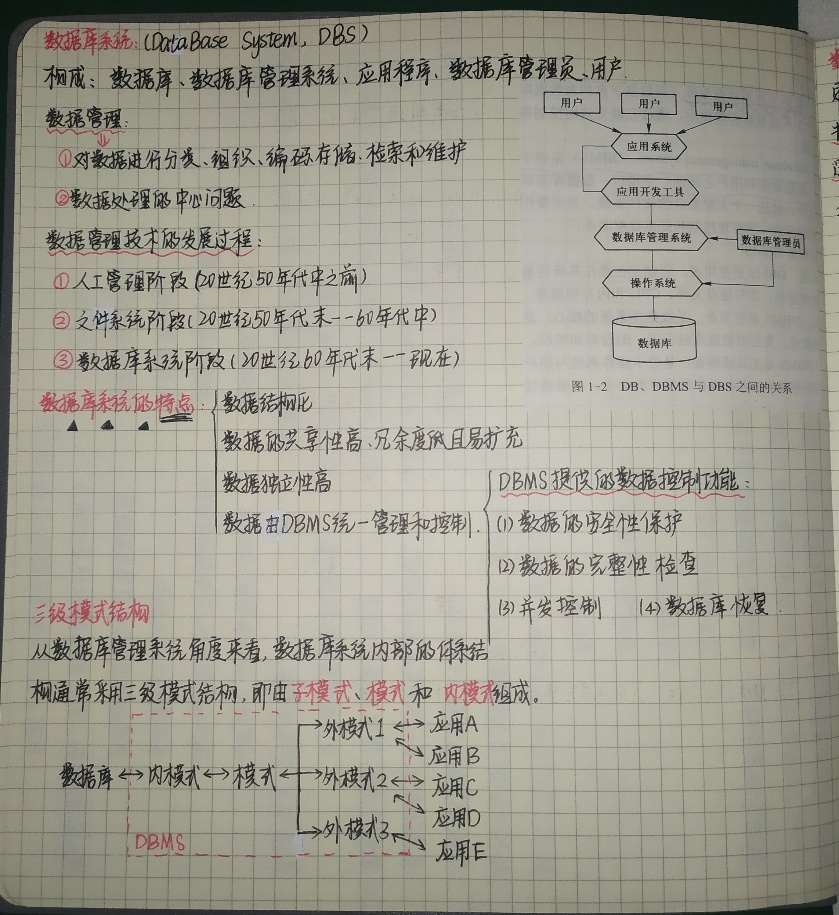 数据库系统:(DataBase System, DBS)
构成: 数据库、数据库管理系统、应用程序、数据库管理员、用户.
数据管理:
①对数据进行分类、组织、编码、存储、检索和维护
②数据处理的中心问题.
数据管理技术的发展过程:
① 人工管理阶段(20世纪50年代中之前)
② 文件系统阶段(20世纪50年代末--60年代中)
③ 数据库系统阶段(20世纪60年代末--现在)
用户 用户 用户
应用系统
应用开发工具
数据库管理系统 数据库管理员
操作系统
数据库
图 1-2 DB、DBMS 与 DBS 之间的关系
数据库系统的特点:
数据结构化
数据的共享性高、冗余度低且易扩充
数据独立性高
数据由DBMS统一管理和控制.
DBMS提供的数据控制功能:
(1) 数据的安全性保护
(2) 数据的完整性检查
(3) 并发控制 (4) 数据库恢复.
三级模式结构
从数据库管理系统角度来看,数据库系统内部的体系结
构通常采用三级模式结构,即由子模式、模式和内模式组成。
外模式1 应用A
应用B
数据库 内模式 模式 外模式2 应用C
应用D
外模式3
应用E
DBMS